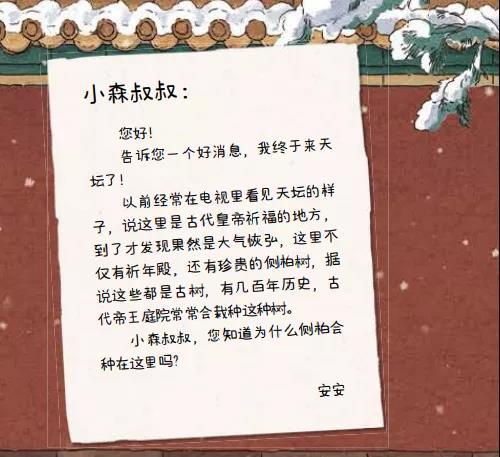 小森叔叔：
您好！
告诉您一个好消息，我终于来天
坛了！
以前经常在电视里看见天坛的样
子，说这里是古代皇帝祈福的地方，
到了才发现果然是大气恢弘，这里不
仅有祈年殿，还有珍贵的侧柏树，据
说这些都是古树，有几百年历史，古
代帝王庭院常常会栽种这种树。
小森叔叔，您知道为什么侧柏会
种在这里吗？
安安